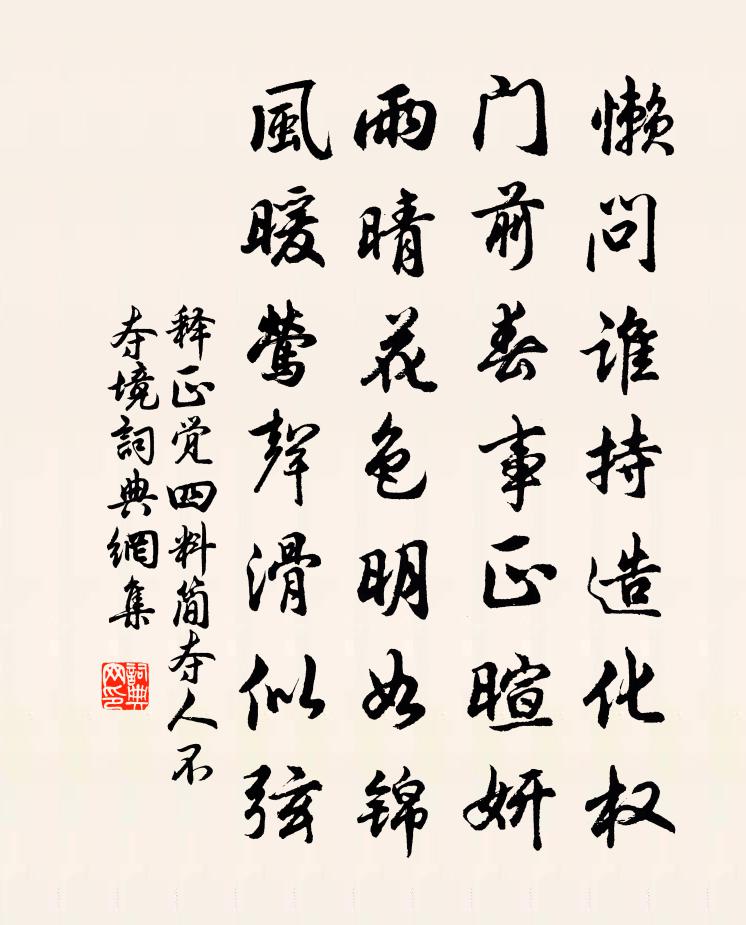 懒问谁持造化权
门前春事正暄妍
雨晴花色明如锦
風暖莺聲滑似弦
释正觉四料简夺人不
夺境詞典網集
詞典
网印